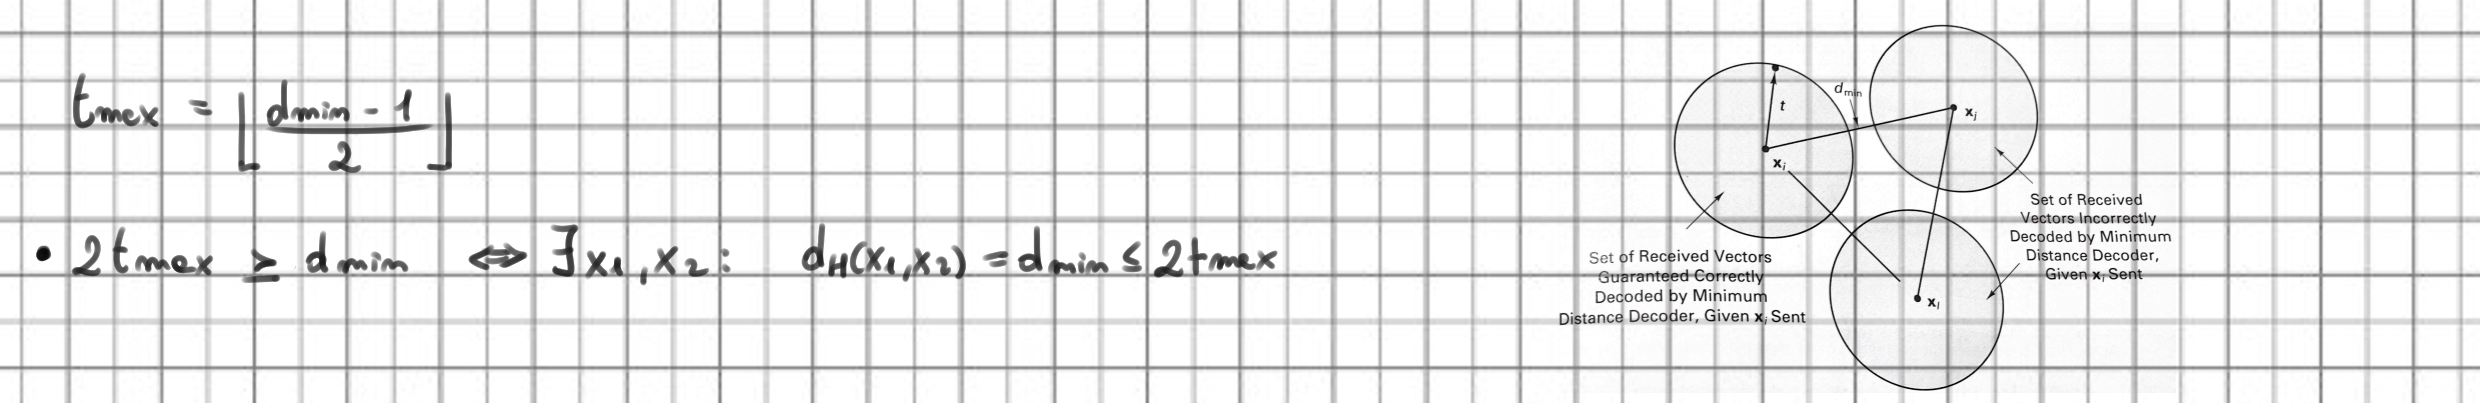 tmax = ⌊(dmin - 1)/2⌋
• 2tmax ≥ dmin ⇔ ∃x₁,x₂: dH(x₁,x₂) = dmin ≤ 2tmax
t
dmin
xj
xi
Set of Received
Vectors Guaranteed Correctly
Decoded by Minimum
Distance Decoder, Given xi Sent
Set of Received
Vectors Incorrectly
Decoded by Minimum
Distance Decoder,
Given xi Sent
xl